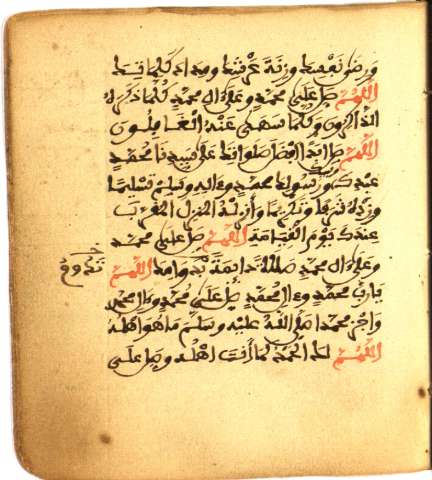 نفسك وزنة عرشك ومداد كلماتك
اللهم صل على محمد وعلى ال محمد كلما ذكره
الذاكرون وكلما سهى عنه الغافلون
اللهم صل ابدا افضل صلواتك على سيدنا محمد
عبدك ورسولك محمد وءاله وسلم تسليما
وزده شرفا وتكريما وأنزله المنزل المقرب
عندك يوم القيامة اللهم صل على محمد
وعلى ال محمد صلاة دائمة بدوامك اللهم
يا رب محمد وءال محمد صل على محمد وءال محمد
واجز محمدا صلى الله عليه وسلم ما هو اهله
اللهم لك الحمد كما أنت اهله وصل على